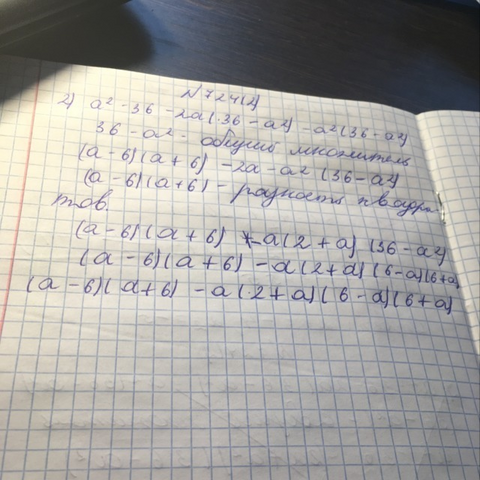 N 724(2)
2) a² - 36 - 2a(36 - a²) - a²(36 - a²)
36 - a² - общий множитель
(a - 6)(a + 6) - 2a - a² (36 - a²)
(a - 6)(a + 6) - разность квадра
тов.
(a - 6)(a + 6) - a(2 + a) (36 - a²)
(a - 6)(a + 6) - a(2 + a)(6 - a)(6 + a)
(a - 6)(a + 6) - a(2 + a)(6 - a)(6 + a)